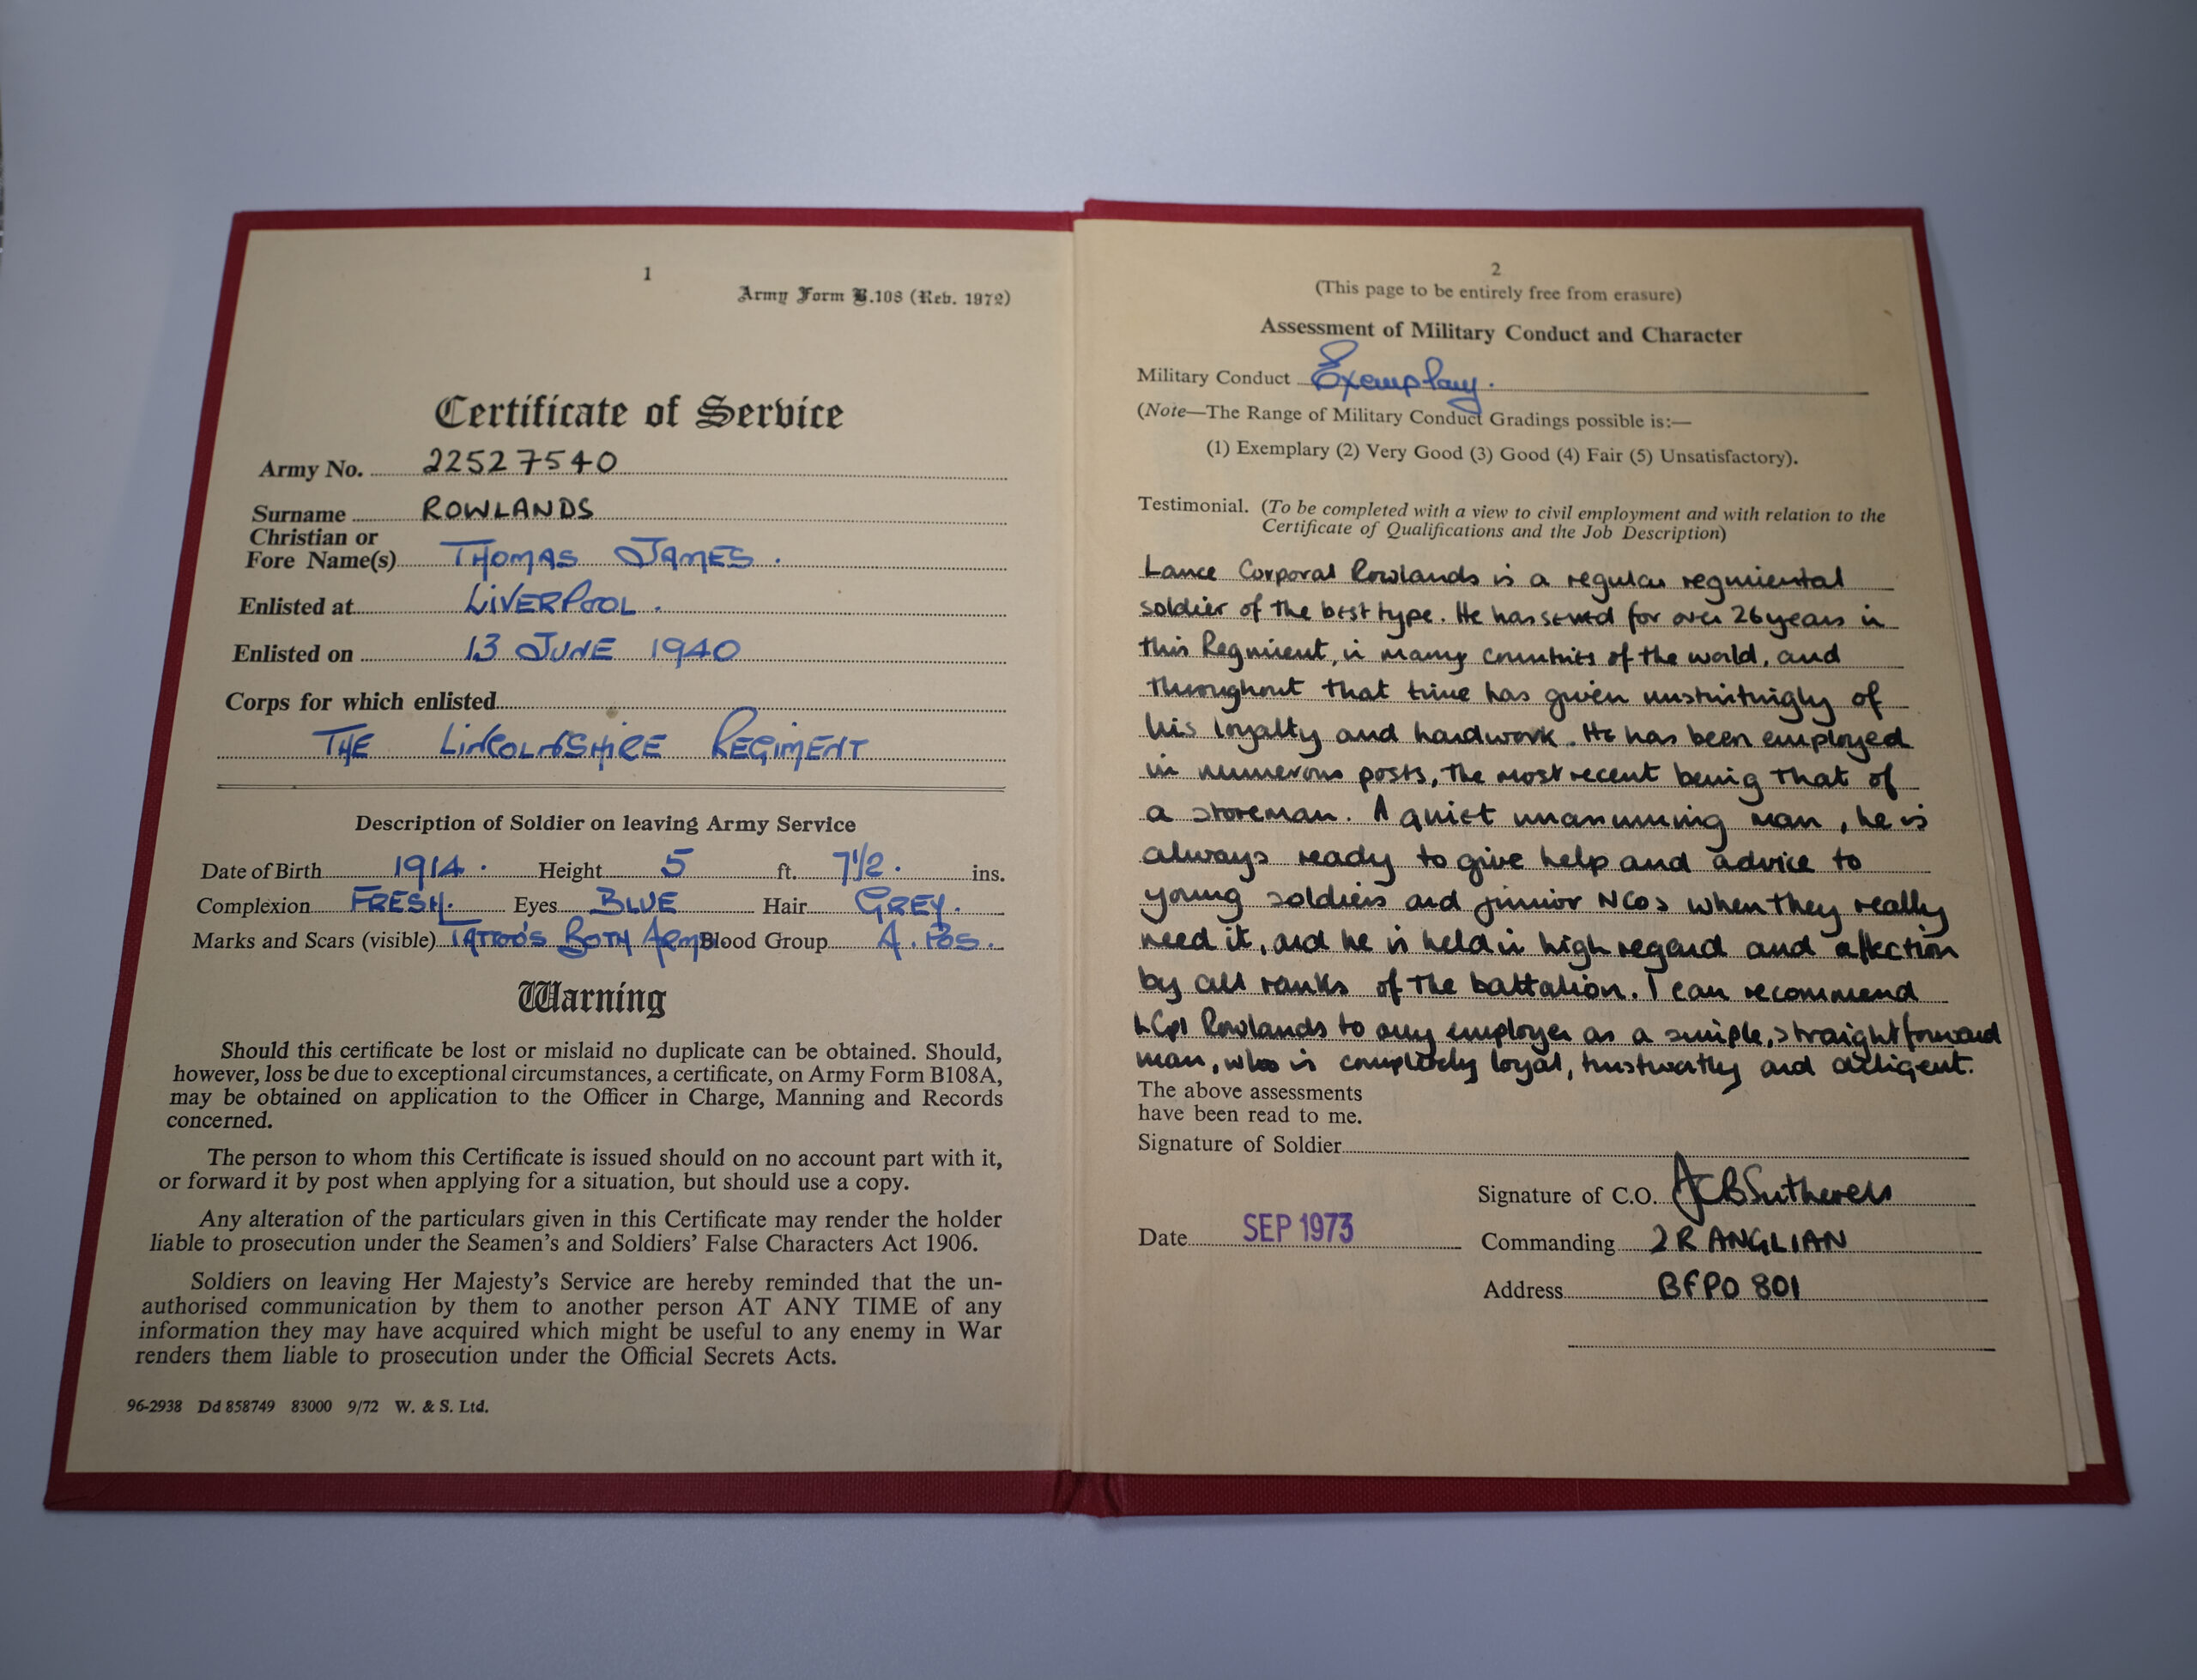 1
Army Form B.108 (Rev. 1972)
Certificate of Service
Army No. 22527540
Surname ROWLANDS
Christian or
Fore Name(s) THOMAS JAMES.
Enlisted at LIVERPOOL.
Enlisted on 13 JUNE 1940
Corps for which enlisted
THE LINCOLNSHIRE REGIMENT
Description of Soldier on leaving Army Service
Date of Birth 1914. Height 5 ft. 7 1/2. ins.
Complexion FRESH. Eyes BLUE Hair GREY.
Marks and Scars (visible) TATTOO'S BOTH ARMS. Blood Group A. POS.
Warning
Should this certificate be lost or mislaid no duplicate can be obtained. Should,
however, loss be due to exceptional circumstances, a certificate, on Army Form B108A,
may be obtained on application to the Officer in Charge, Manning and Records
concerned.
The person to whom this Certificate is issued should on no account part with it,
or forward it by post when applying for a situation, but should use a copy.
Any alteration of the particulars given in this Certificate may render the holder
liable to prosecution under the Seamen's and Soldiers' False Characters Act 1906.
Soldiers on leaving Her Majesty's Service are hereby reminded that the un-
authorised communication by them to another person AT ANY TIME of any
information they may have acquired which might be useful to any enemy in War
renders them liable to prosecution under the Official Secrets Acts.
96-2938 Dd 858749 83000 9/72 W. & S. Ltd.
2
(This page to be entirely free from erasure)
Assessment of Military Conduct and Character
Military Conduct Exemplary.
(Note—The Range of Military Conduct Gradings possible is:—
(1) Exemplary (2) Very Good (3) Good (4) Fair (5) Unsatisfactory).
Testimonial. (To be completed with a view to civil employment and with relation to the
Certificate of Qualifications and the Job Description)
Lance Corporal Rowlands is a regular regimental
soldier of the best type. He has served for over 26 years in
this Regiment, in many countries of the world, and
throughout that time has given unstintingly of
his loyalty and hardwork. He has been employed
in numerous posts, the most recent being that of
a storeman. A quiet unassuming man, he is
always ready to give help and advice to
young soldiers and junior NCOs when they really
need it, and he is held in high regard and affection
by all ranks of the battalion. I can recommend
LCpl Rowlands to any employer as a simple, straightforward
man, who is completely loyal, trustworthy and diligent.
The above assessments
have been read to me.
Signature of Soldier
Signature of C.O.
Date SEP 1973
Commanding 2 R ANGLIAN
Address BFPO 801